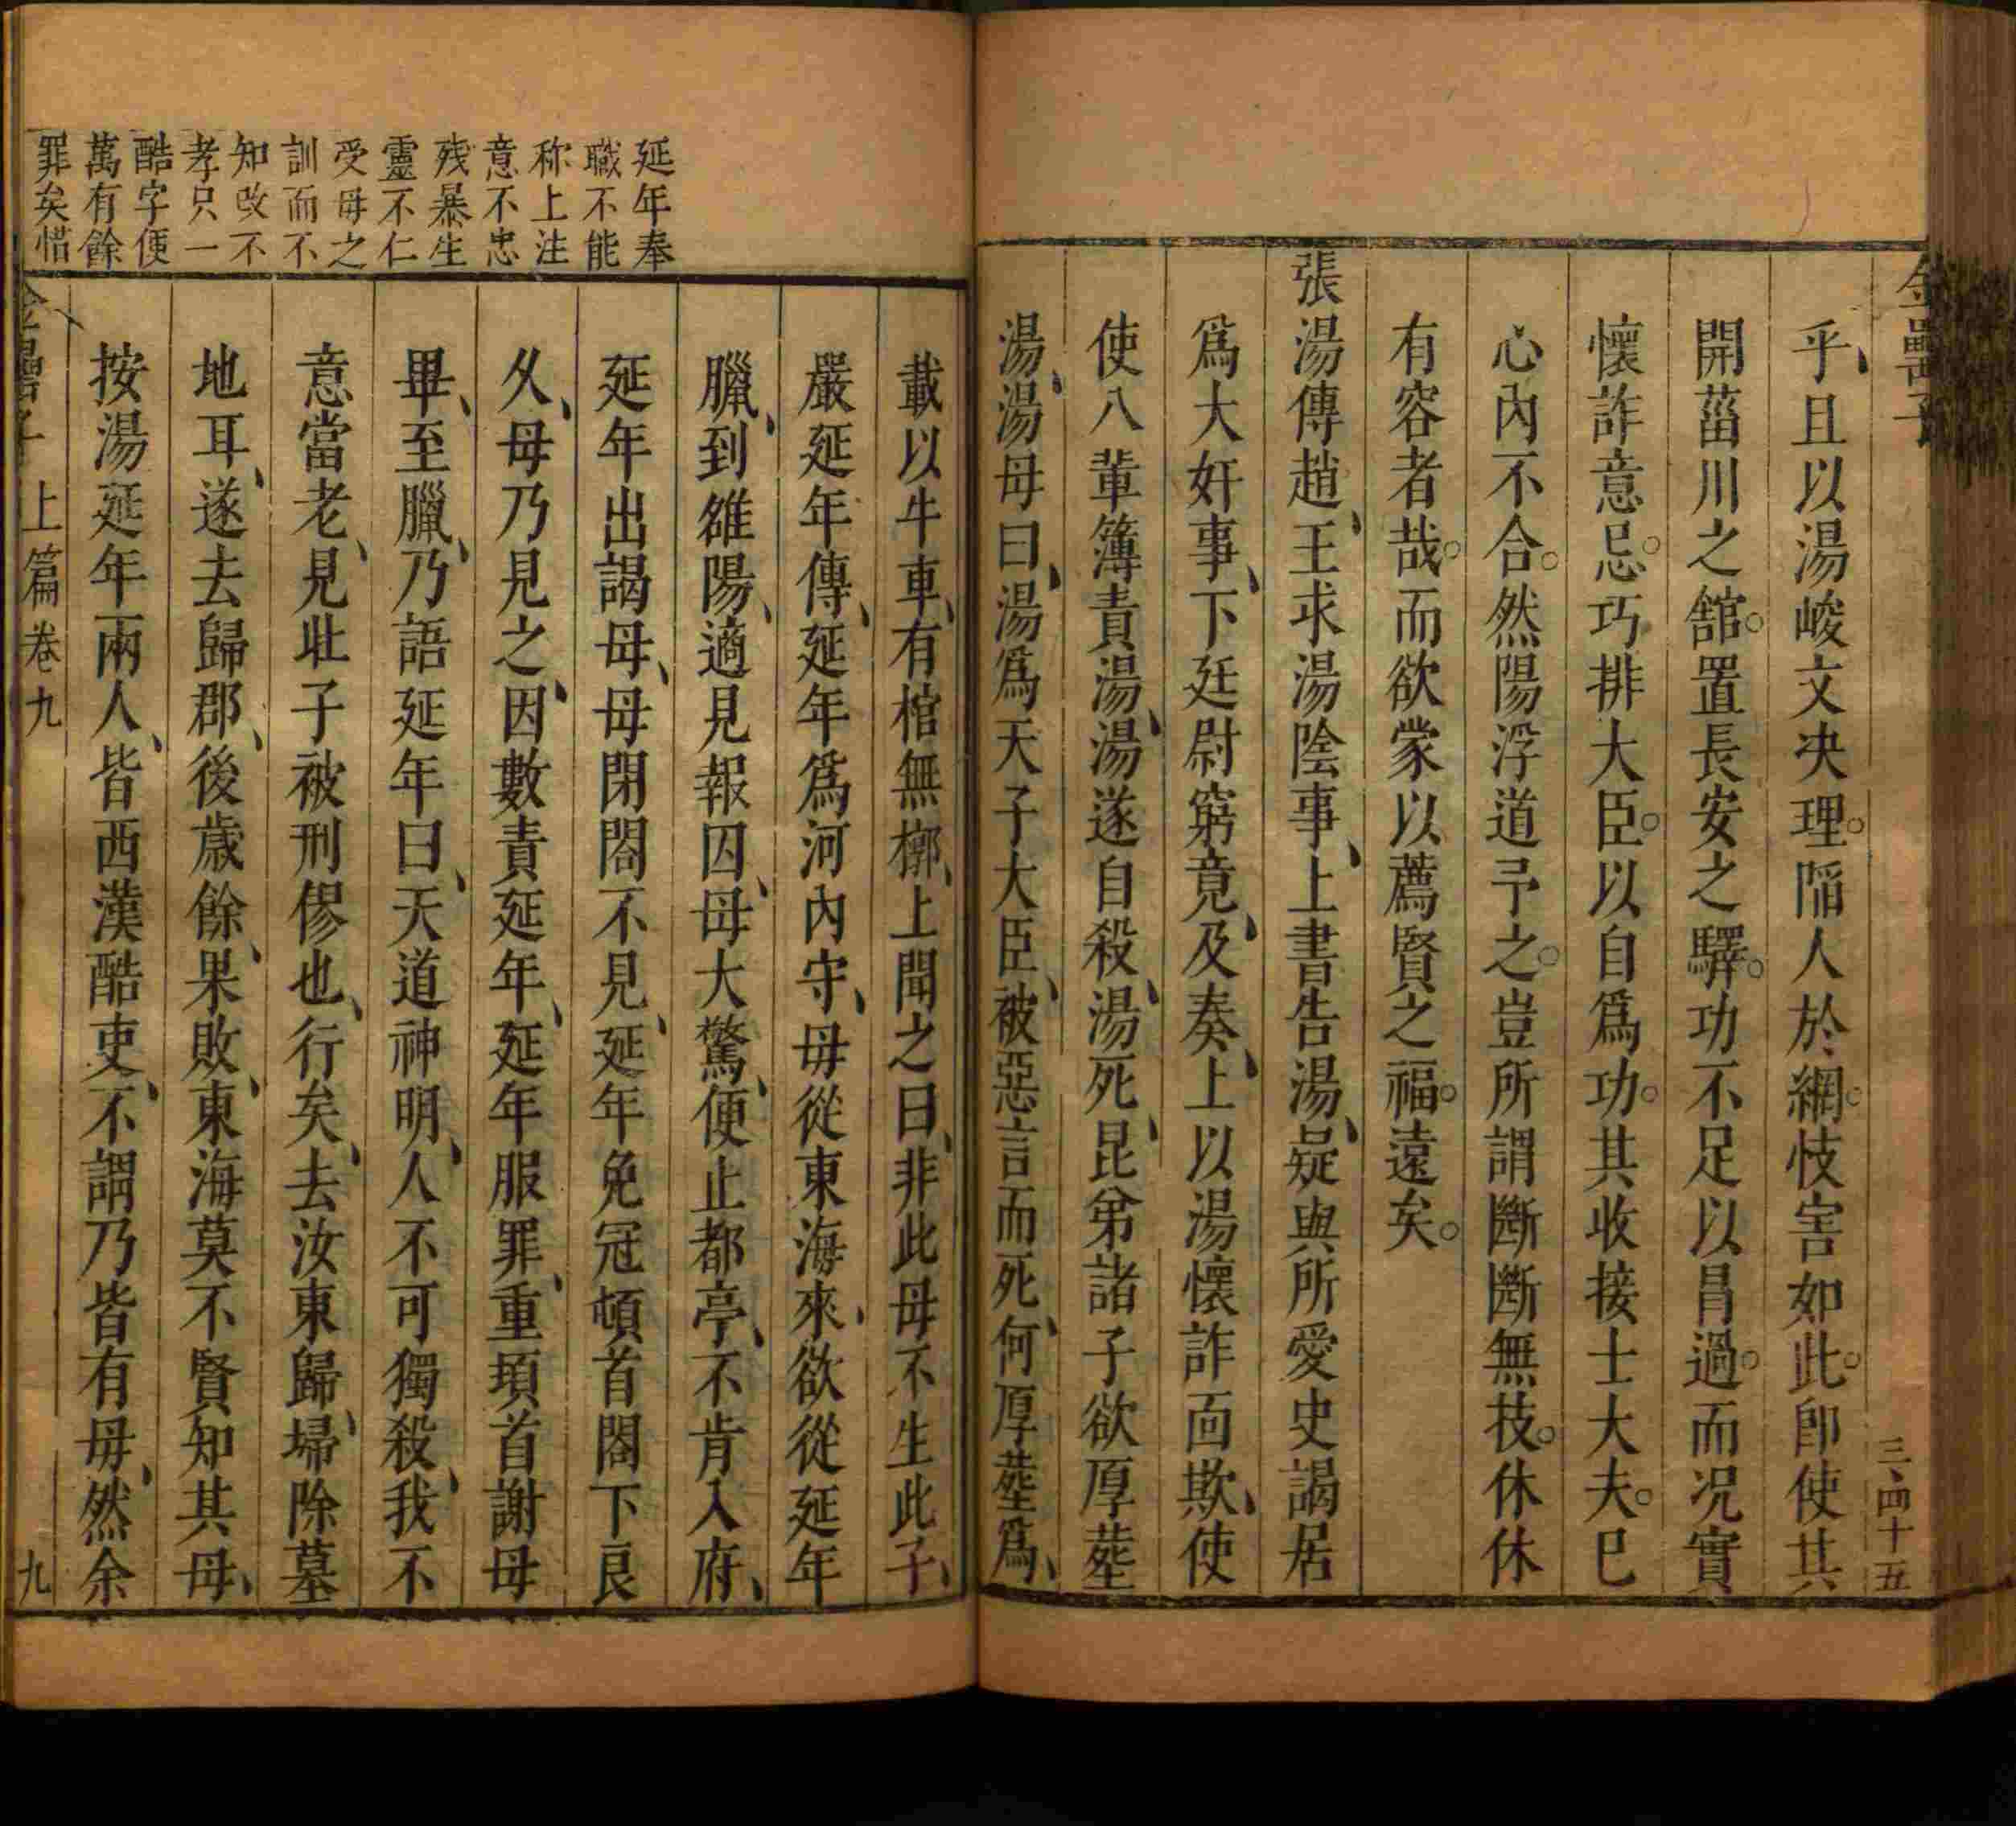 金罍子
三、四十五
乎、且以湯峻文决理。陷人於網。忮害如此。卽使其
開菑川之舘。置長安之驛。功不足以昌過。而况實
懷詐意忌。巧排大臣。以自爲功。其收接士大夫。巳
心內不合。然陽浮道予之。豈所謂斷斷無技。休休
有容者哉。而欲蒙以薦賢之福。遠矣。
張湯傳趙王、求湯陰事、上書告湯、疑與所愛史謁居
爲大奸事、下廷尉窮竟、及奏、上以湯懷詐靣欺、使
使八軰簿責湯、湯遂自殺、湯死、昆弟諸子欲厚塟
湯、湯母曰、湯爲天子大臣、被惡言而死、何厚塟爲、
載以牛車、有棺無槨、上聞之曰、非此母不生此子、
嚴延年傳、延年爲河內守、母從東海來、欲從延年
臘、到雒陽、適見報囚、母大驚、便止都亭、不肯入府、
延年出謁母、母閉閤不見、延年免冠頓首閤下良
久、母乃見之、因數責延年、延年服罪、重頓首謝母
畢、至臘、乃語延年曰、天道神明、人不可獨殺、我不
意當老、見壯子被刑僇也、行矣、去汝東歸、埽除墓
地耳、遂去歸郡、後歲餘、果敗、東海莫不賢知其母、
按湯延年兩人、皆西漢酷吏、不謂乃皆有母、然余
延年奉
職不能
称上注
意不忠
残暴生
靈不仁
受母之
訓而不
知改不
孝只一
酷字便
萬有餘
罪矣惜
金罍子　上篇卷九
九